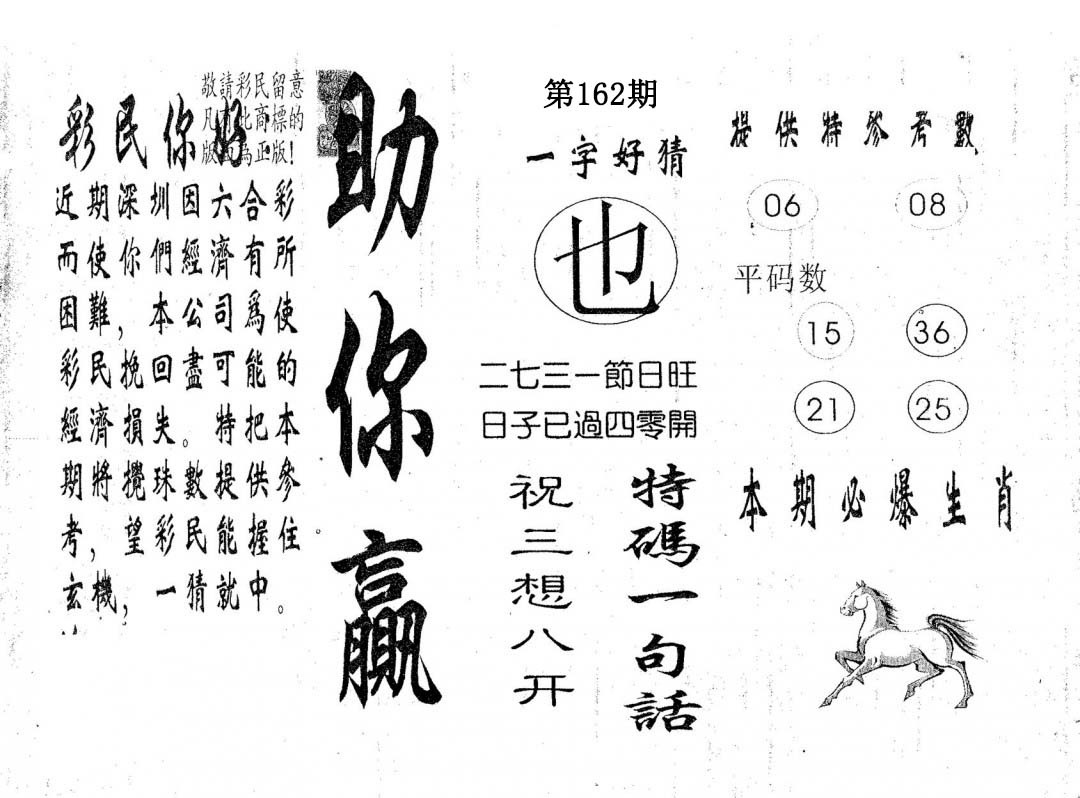 敬請彩民留意
凡有此商標的
版面為正版！
彩民你好
近期深圳因六合彩
而使你們經濟有所
困難，本公司爲使
彩民挽回盡可能的
經濟損失。特把本
期將攪珠數提供參
考，望彩民能握住
玄機，一猜就中。
助你贏
第162期
一字好猜
也
二七三一節日旺
日子已過四零開
特碼一句話
祝三想八开
提供特參考數
06 08
平码数
15 36
21 25
本期必爆生肖